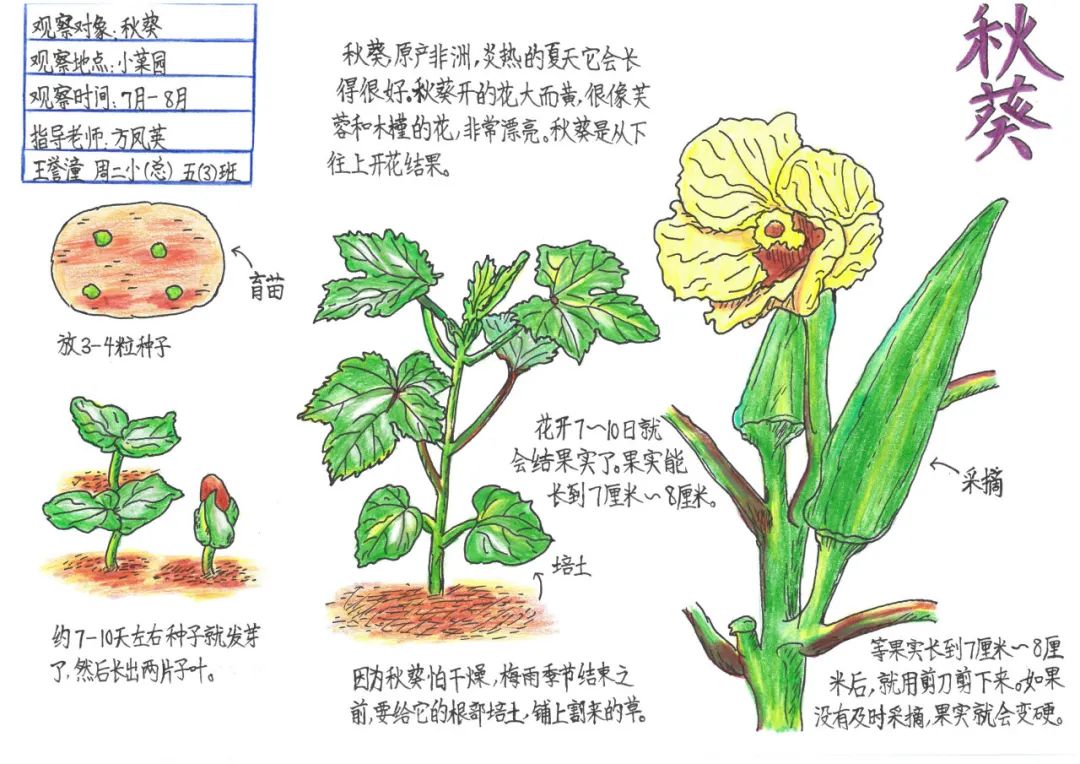 观察对象:秋葵
观察地点:小菜园
观察时间:7月-8月
指导老师:方凤英
王誉潼 周二小(总) 五(3)班
秋葵
秋葵,原产非洲,炎热的夏天它会长
得很好。秋葵开的花大而黄,很像芙
蓉和木槿的花,非常漂亮。秋葵是从下
往上开花结果。
育苗
放3-4粒种子
约7-10天左右种子就发芽
了,然后长出两片子叶。
培土
因为秋葵怕干燥,梅雨季节结束之
前,要给它的根部培土,铺上割来的草。
花开7~10日就
会结果实了。果实能
长到7厘米~8厘米。
采摘
等果实长到7厘米~8厘
米后,就用剪刀剪下来。如果
没有及时采摘,果实就会变硬。